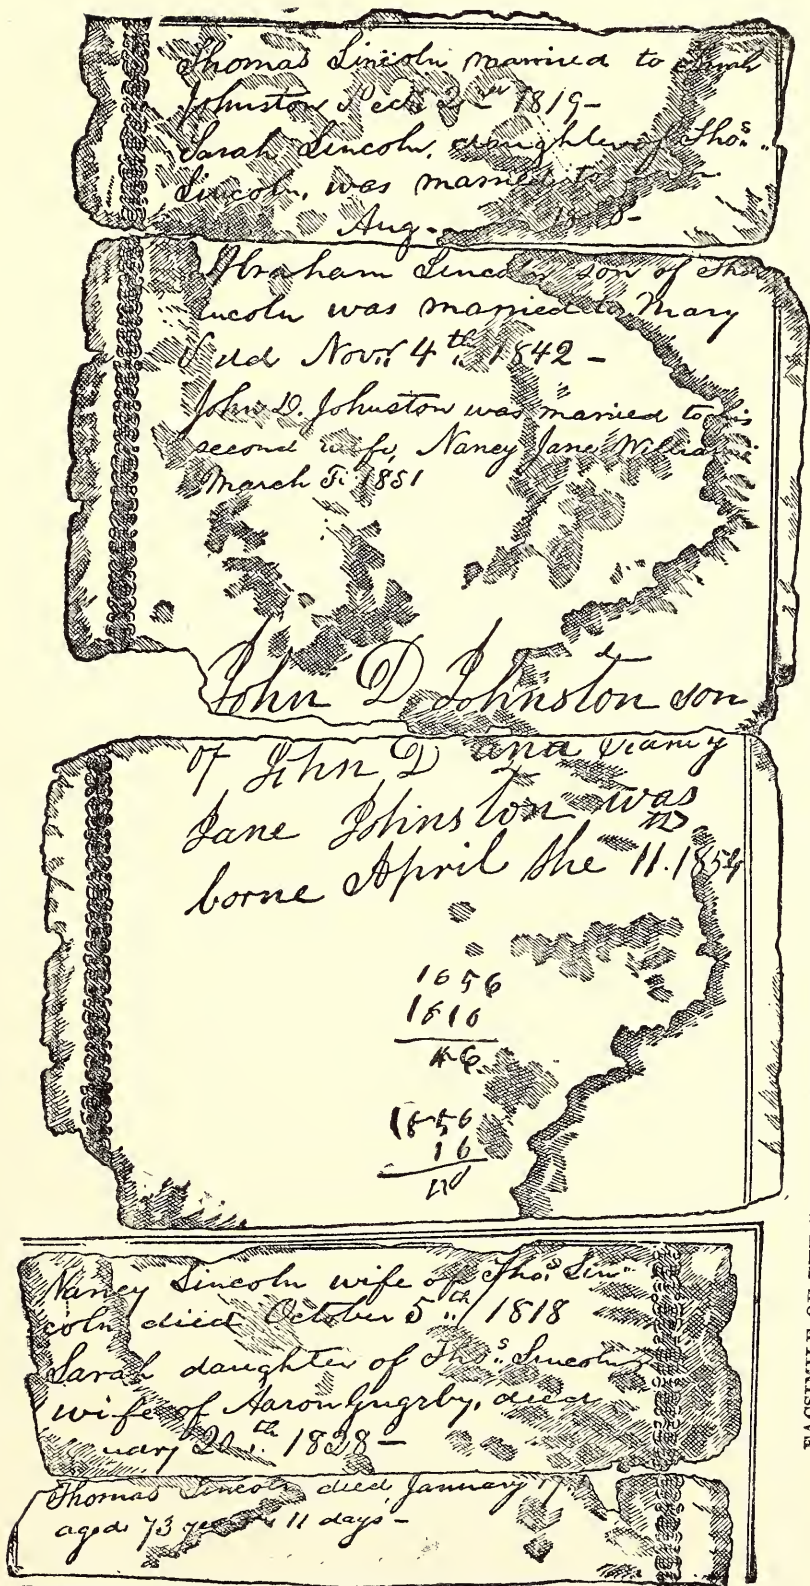 Thomas Lincoln married to Sarah
Johnston Decr 2nd 1819–
Sarah Lincoln, daughter of Thos.
Lincoln, was married to
Aug– 18 8–
Abraham Lincoln son of Thos
incoln was married to Mary
Novr 4th 1842 –
John D. Johnston was married to his
second wife, Nancy Jane William
March 1851
John D Johnston son
of John D and Nancy
Jane Johnston was
borne April the 11. 1854
1856
1816
1856
16
Nancy Lincoln wife of Thos. Lin-
coln died October 5th 1818
Sarah daughter of Thos. Lincoln
wife of Aaron Grigsby, died
uary 20th 1828 –
Thomas Lincoln died January 17
aged 73 years 11 days –